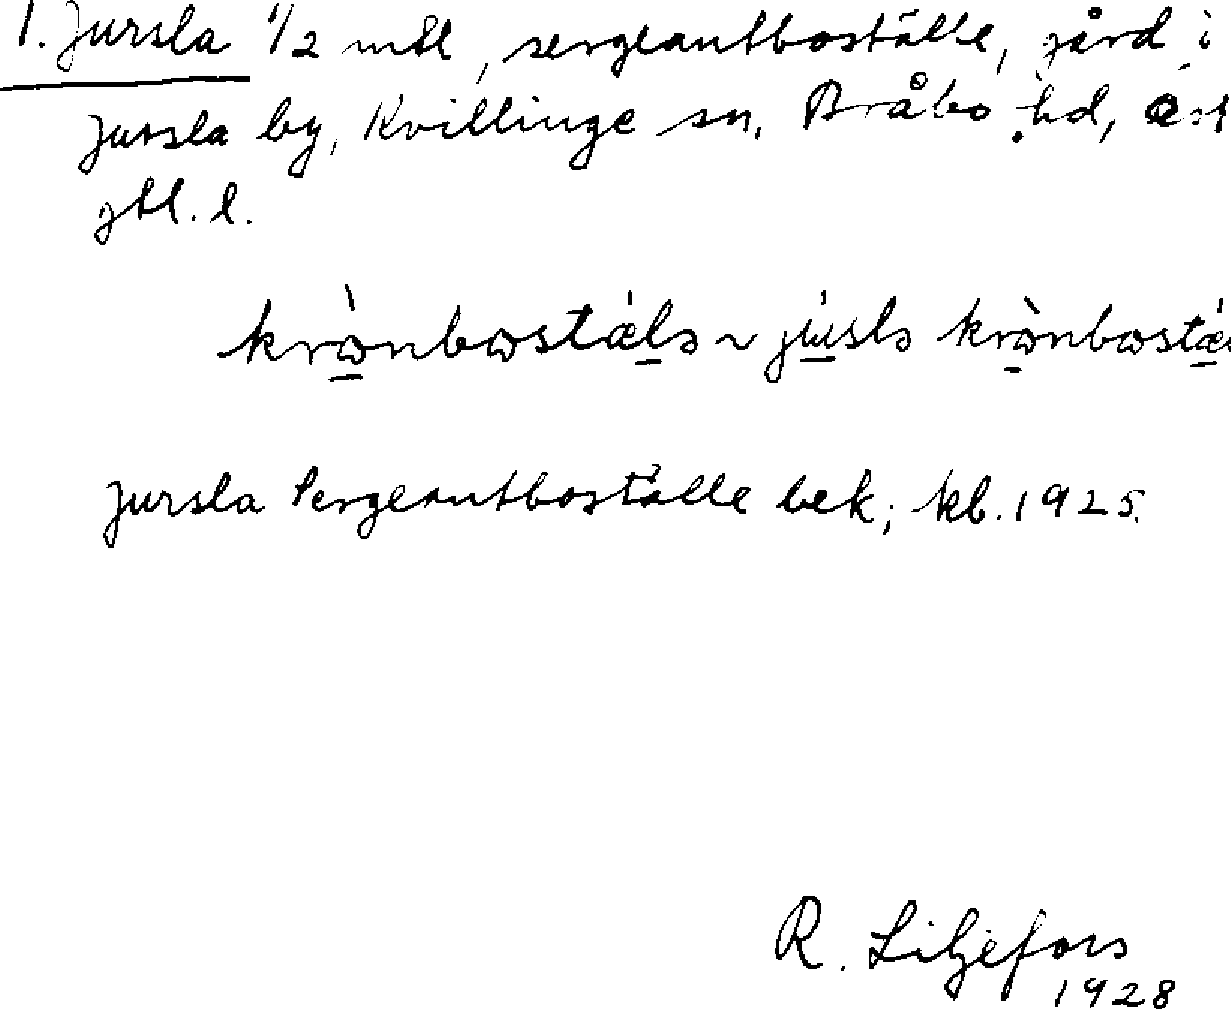 1. Jursla 1/2 mtl, sergeantboställe, gård i
Jursla by, Kvillinge sn, Bråbo hd, Öst
gtl. l.
~ 
Jursla Sergeantboställe bek; kb. 1925.
R. Liljefors
1928